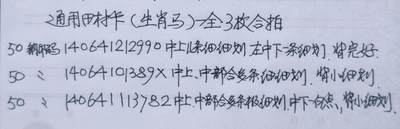 通用田村卡(生肖马)一全3枚合拍
50 解码 14064121299O 中上1条细细划左中下一条细划.背完好.
50 〃 1406410389X 中上.中部合多条细划.背小细划.
50 〃 140641113782 中上.中部合多条极细划中下一白点.背小细划.